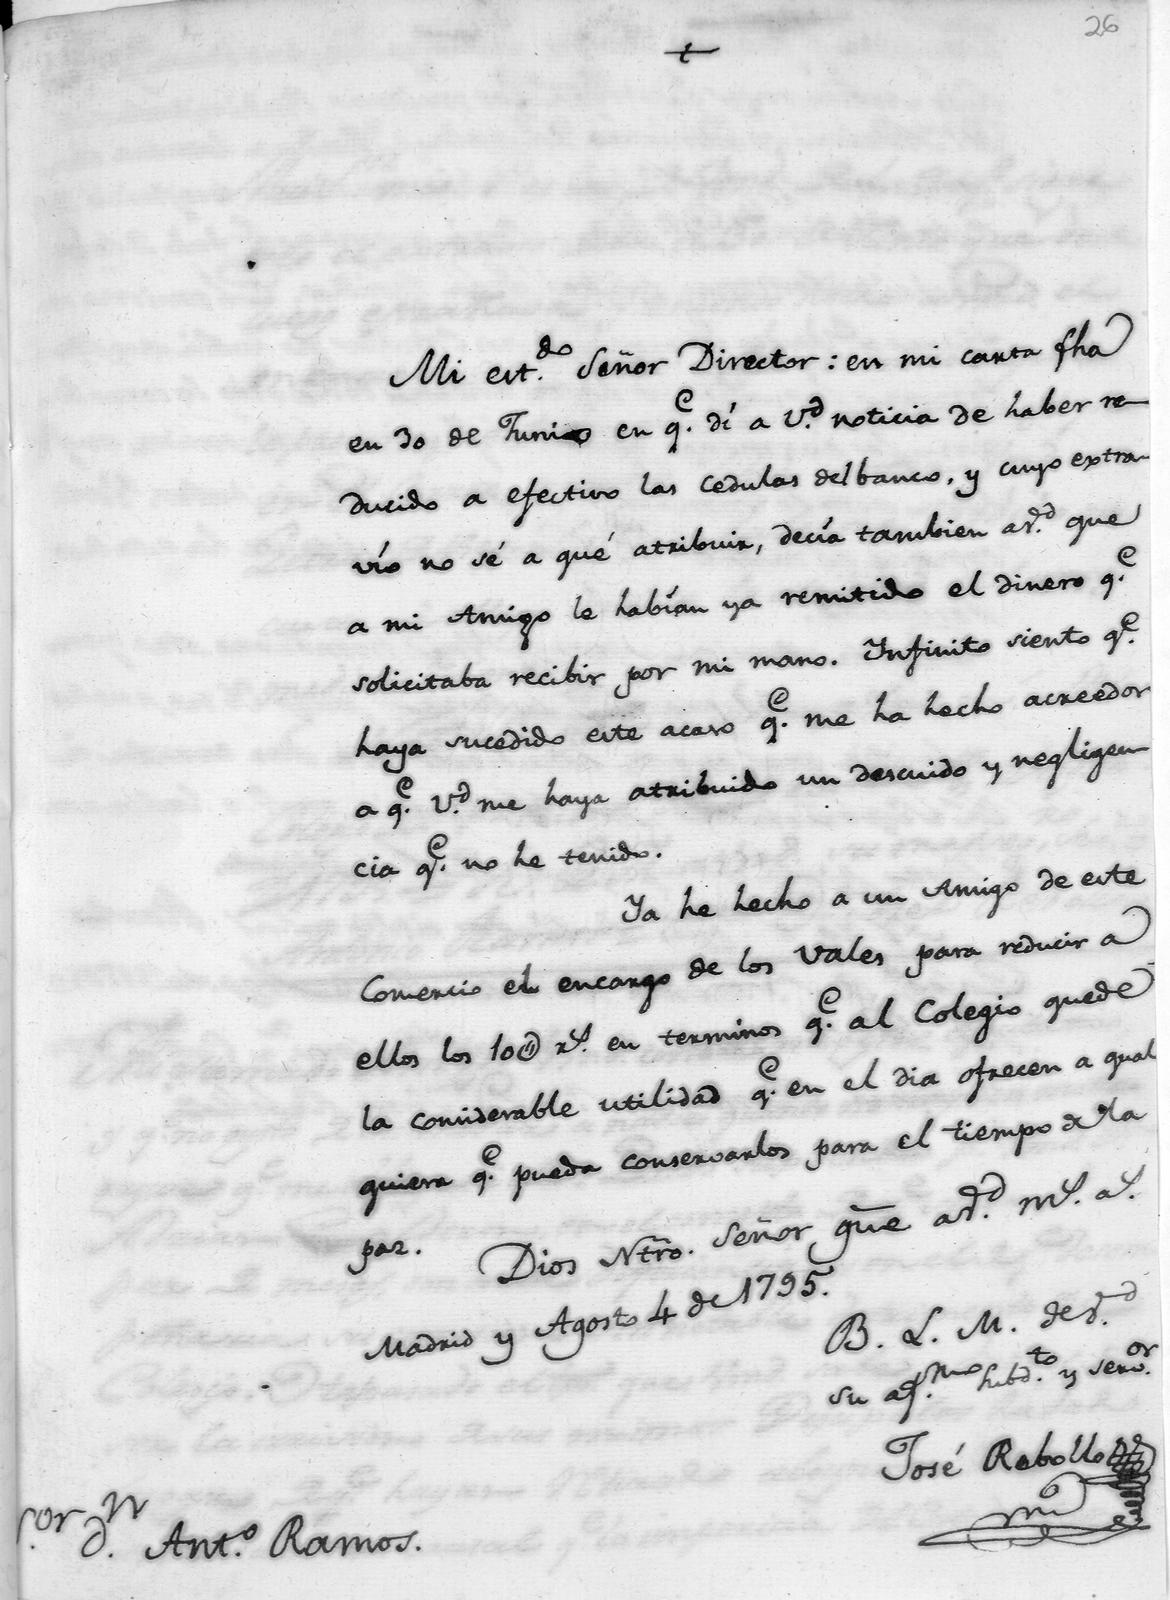 26
†
Mi est.do Señor Director: en mi carta fha
en 30 de Junio en q.e dí a V.d noticia de haber re-
ducido a efectivo las cedulas del banco, y cuyo extra-
vío no sé a qué atribuir, decía tambien a V.d que
a mi Amigo le habían ya remitido el dinero q.e
solicitaba recibir por mi mano. Infinito siento q.e
haya sucedido este acaso q.e me ha hecho acreedor
a q.e V.d me haya atribuido un descuido y negligen-
cia q.e no he tenido.
Ya he hecho a un Amigo de este
Comercio el encargo de los Vales para reducir a
ellos los 10@ r.s en terminos q.e al Colegio quede
la considerable utilidad q.e en el dia ofrecen a qual
quiera q.e pueda conservarlos para el tiempo de la
paz. Dios Ntro. Señor gue a V.d m.s a.s
Madrid y Agosto 4 de 1795.
B. L. M. de V.d
su af.mo subd.to y serv.or
José Rebollo
S.or d.n Ant.o Ramos.